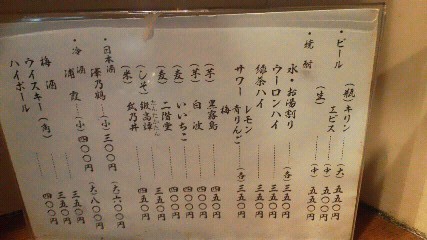 ・ビール
(瓶) キリン ………… (大) 五五〇円
エビス ………… (中) 五〇〇円
(生) ………… (中) 五五〇円
・焼酎
水・お湯割り ………… (各) 三五〇円
ウーロンハイ ………… 三五〇円
緑茶ハイ ………… 三五〇円
サワー レモン 青りんご 梅 ………… (各) 三五〇円
(芋) 黒霧島 ………… 四五〇円
(芋) 白波 ………… 四〇〇円
(麦) いいちこ ………… 四〇〇円
(麦) 二階堂 ………… 四五〇円
(しそ) 鍛高譚 ………… 四五〇円
(米) 吹乃井 ………… 四五〇円
・日本酒
澤乃鶴 … (小) 三〇〇円 (大) 六〇〇円
・冷酒
浦霞 … (小) 四〇〇円 (大) 八〇〇円
梅酒 ………… 三五〇円
ウイスキー (角) ………… 三五〇円
ハイボール ………… 四〇〇円